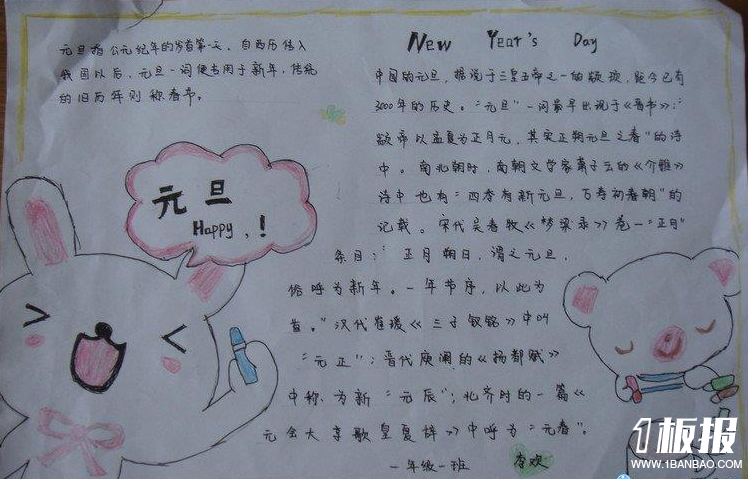 元旦指公元纪年的岁首第一天。自西历传入
我国以后,元旦一词便专用于新年,传统
的旧历年则称春节。
元旦
Happy,!
New Year's Day
中国的元旦,据说于三皇五帝之一的颛顼,距今已有
3000年的历史。"元旦"一词最早出现于《晋书》:"
颛帝以孟夏为正月元,其实正朔元旦之春"的诗
中。南北朝时,南朝文学家萧子云的《介雅》
诗中也有"四季有新元旦,万寿初春朝"的
记载。宋代吴春牧《梦梁录》卷一"正月"
条目:"正月朔日,谓之元旦,
俗呼为新年。一年节序,以此为
首。"汉代崔瑗《三子钗铭》中叫
"元正";晋代庾阐的《扬都赋》
中称、为新"元辰";北齐时的一篇《
元会大享歌皇夏辞》中呼为"元春"。
一年级一班 李欢
1板报
WWW.1BANBAO.COM